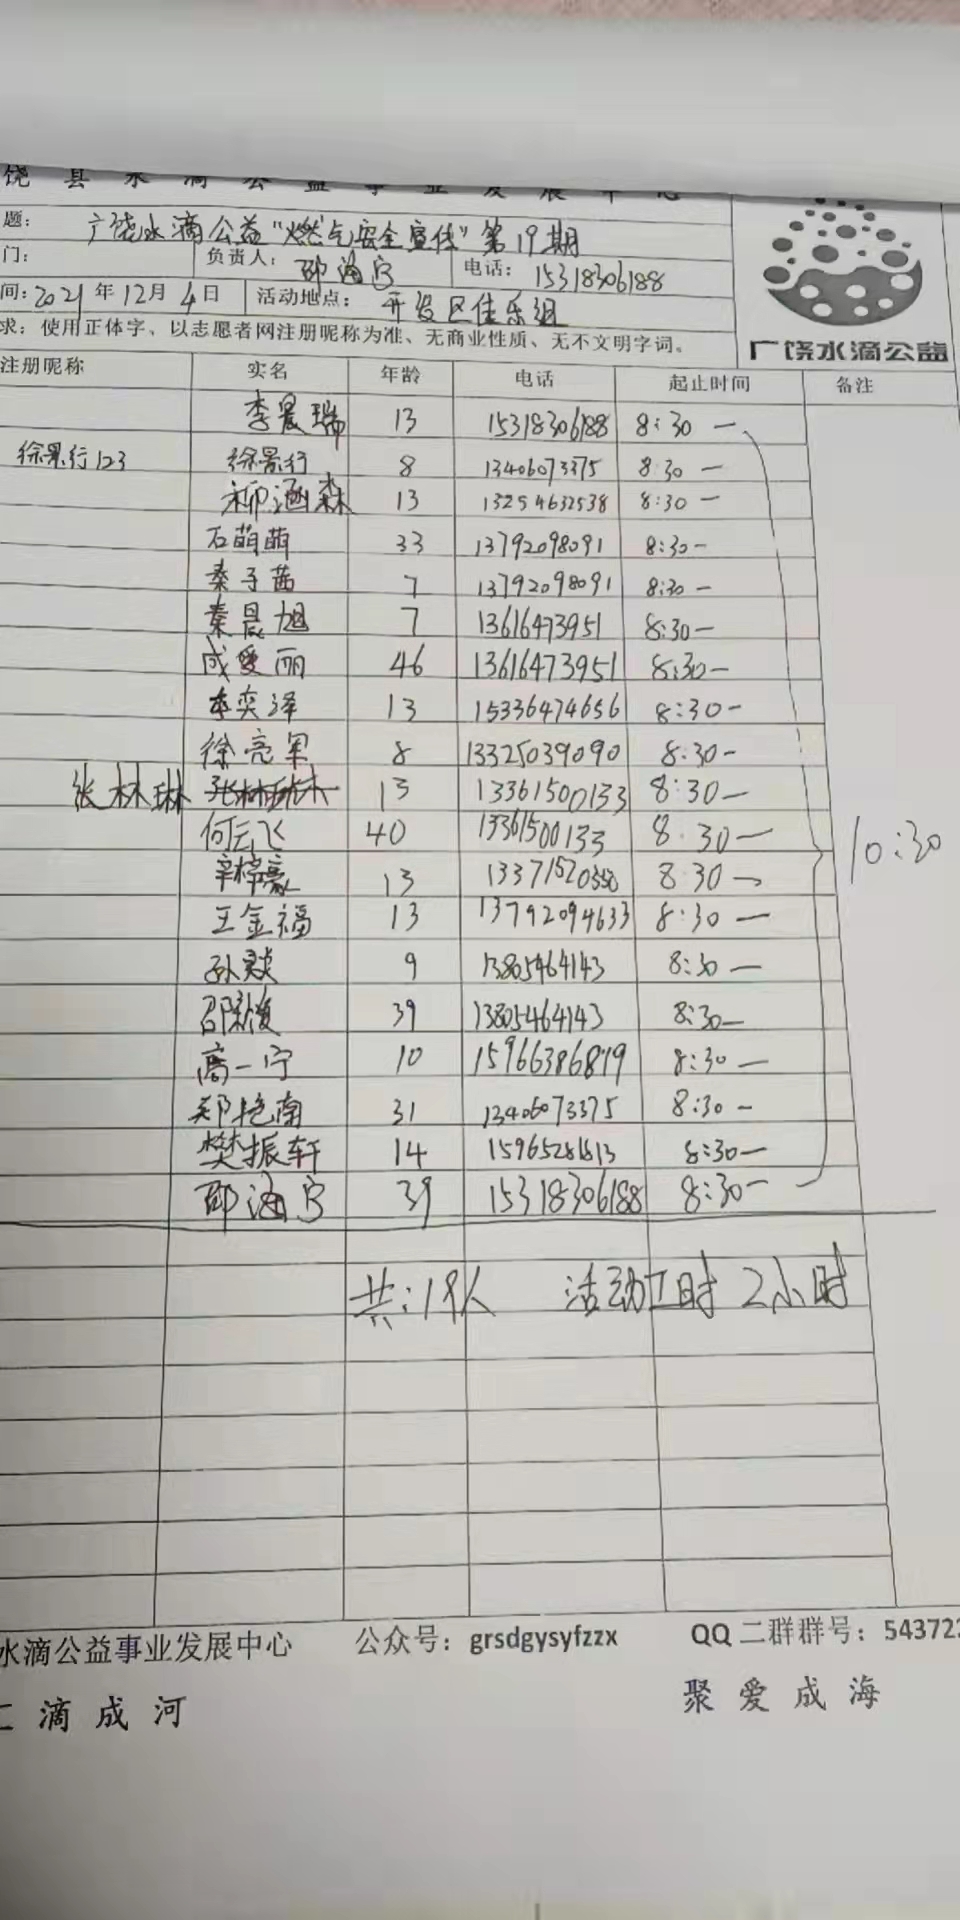 饶县水滴公益事业发展中心
题: 广饶水滴公益"燃气安全宣传"第19期
门: 负责人: 邵海宁 电话: 15318306188
间: 2021年12月4日 活动地点: 开发区佳乐组
求: 使用正体字、以志愿者网注册昵称为准、无商业性质、无不文明字词。
广饶水滴公益
注册昵称 实名 年龄 电话 起止时间 备注
李晨瑞 13 15318306188 8:30 —
徐景行123 徐景行 8 13406073375 8:30 —
柳涵森 13 13254632538 8:30 —
石萌萌 33 13792098091 8:30-
秦子茜 7 13792098091 8:30-
秦晨旭 7 13616473951 8:30-
成爱丽 46 13616473951 8:30-
李奕泽 13 15336474656 8:30-
徐亮军 8 13325039090 8:30-
张林琳 13 13361500133 8:30-
何云飞 40 13361500133 8 30 —
10:30
辛梓豪 13 8 30 —
王金福 13 13792094633 8:30 —
孙 9 13805464143 8:30 —
邵 39 13805464143 8:30-
高一宁 10 15966386819 8:30 —
郑艳南 31 13406073375 8:30 -
樊振轩 14 15965281813 8:30-
邵海宁 39 15318306188 8:30-
共:19人 活动工时 2小时
水滴公益事业发展中心 公众号: grsdgysyfzzx QQ二群群号: 543722
汇滴成河 聚爱成海